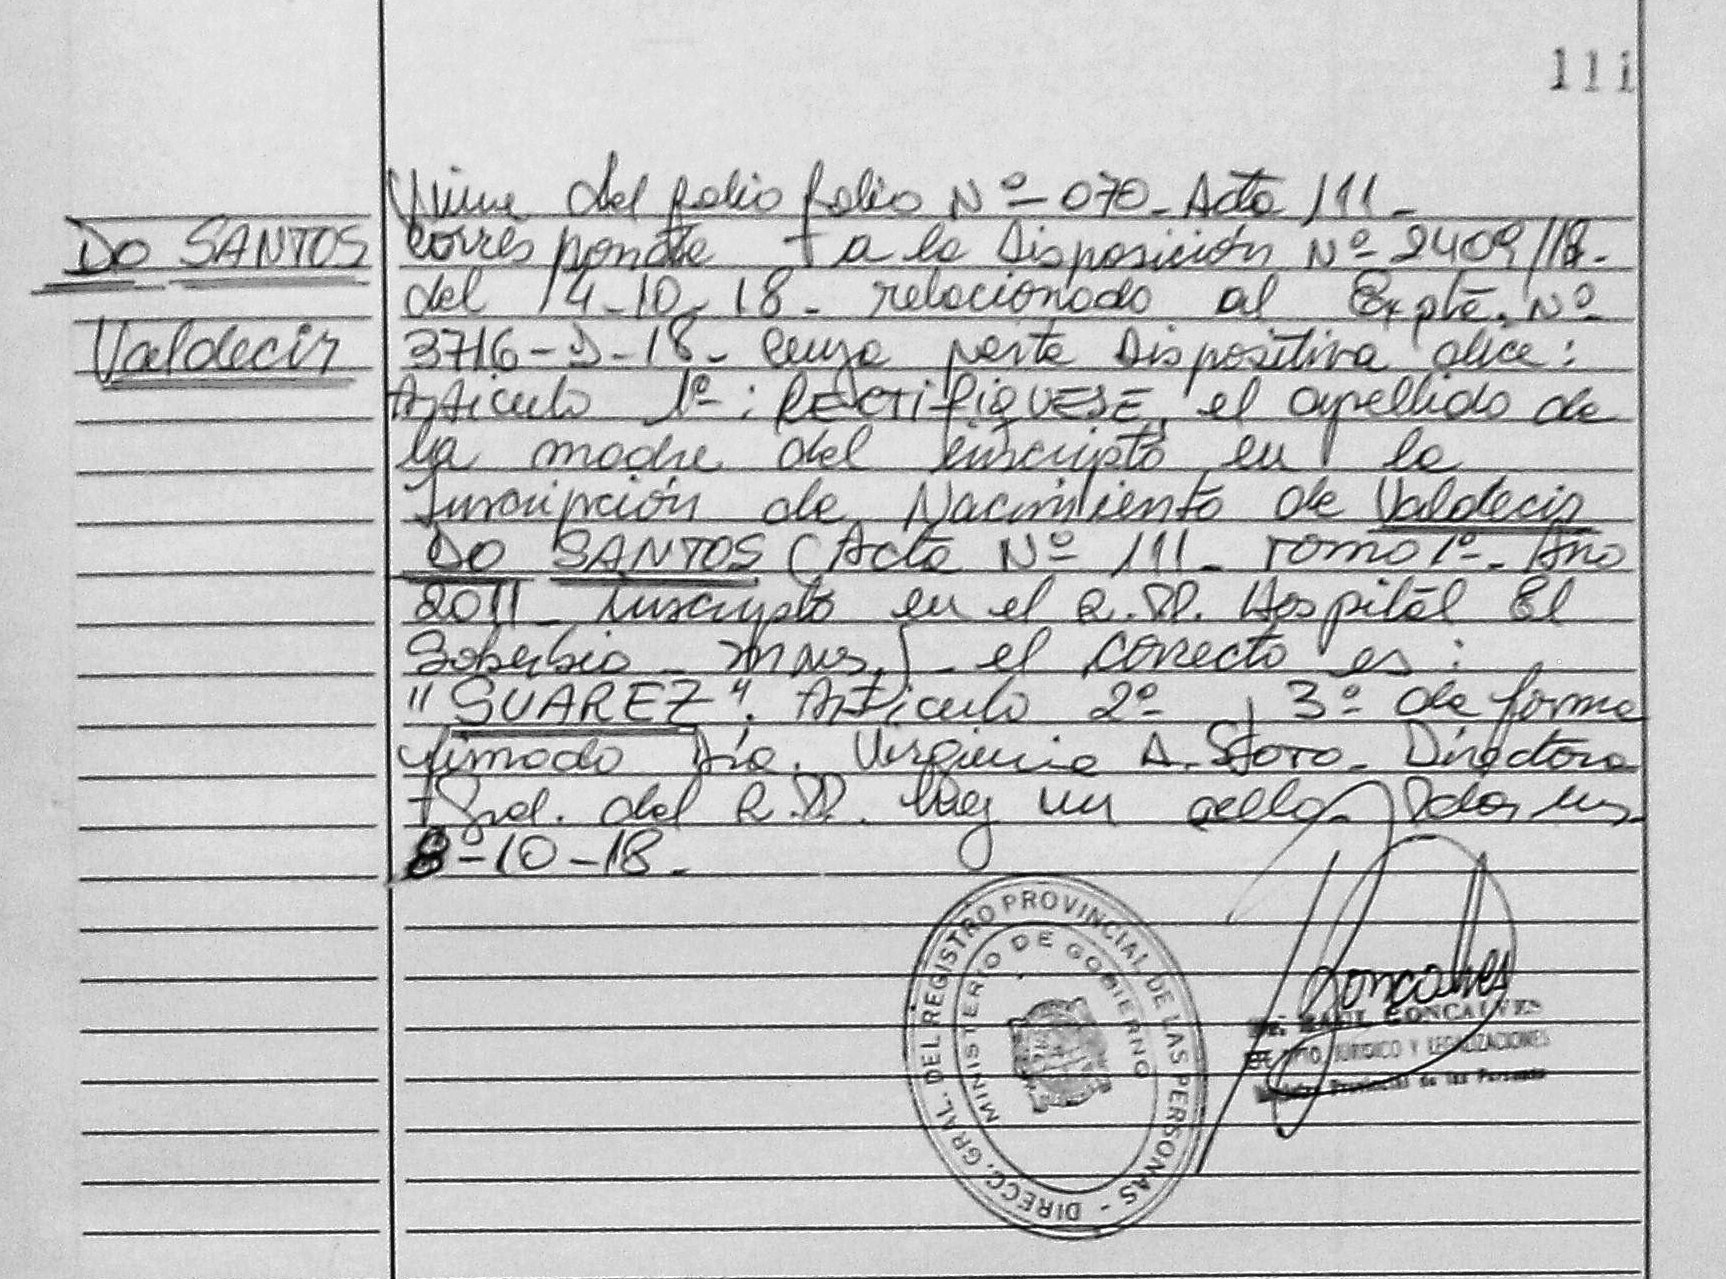 111
Viene del folio folio Nº-070-Acta 111-
DO SANTOS
corresponde a la Disposición Nº-2409/18-
del 14-10-18- relacionado al Expte. Nº
Valdecir
3716-D-18- Cuya parte Dispositiva dice:
Artículo 1º: RECTIFIQUESE el apellido de
la madre del inscripto en la
Inscripción de Nacimiento de Valdecir
DO SANTOS (Acta Nº 111- Tomo 1º- Año
2011- inscripto en el R.PP. Hospital El
Soberbio - Mnes.) - el correcto es:
"SUAREZ". Artículo 2º y 3º de forma
firmado Dra. Virginia A. Directora
Gral. del R.PP. hay un sello. Posadas Mnes
8-10-18-
DIRECC. GRAL. DEL REGISTRO PROVINCIAL DE LAS PERSONAS -
MINISTERIO DE GOBIERNO
Goncalves
RAUL GONCALVES
JURIDICO Y LEGALIZACIONES
Provincial de las Personas